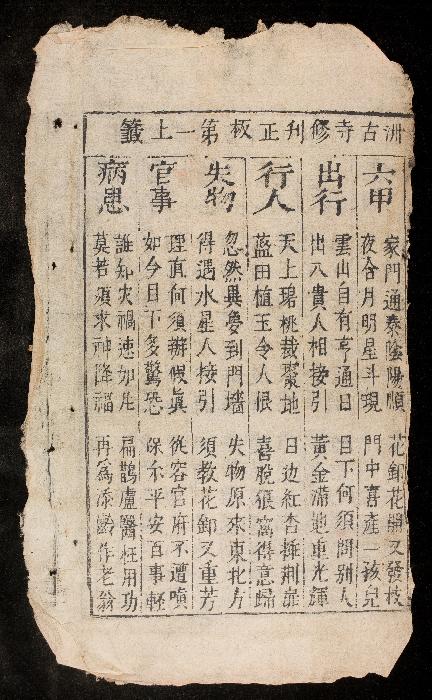 洲古寺修刋正板第一上籤
六甲
家門通泰陰陽順 花卸花開又發枝
夜合月明星斗現 門中喜產一孩兒
出行
雲山自有亨通日 目下何須問別人
出入貴人相接引 黃金滿地重光輝
行人
天上碧桃栽棗地 日边紅杏擁荆扉
藍田植玉令人恨 喜脫窩得意歸
失物
忽然異夢到門墻 失物原來東北方
得遇水星人接引 須教花卸又重芳
官事
理直何須辦假眞 從容官府不遭嗔
如今目下多驚恐 保尔平安百事輕
病患
誰知灾禍速如 福鵲盧醫枉用功
莫若須求神降福 再爲添齡作老翁